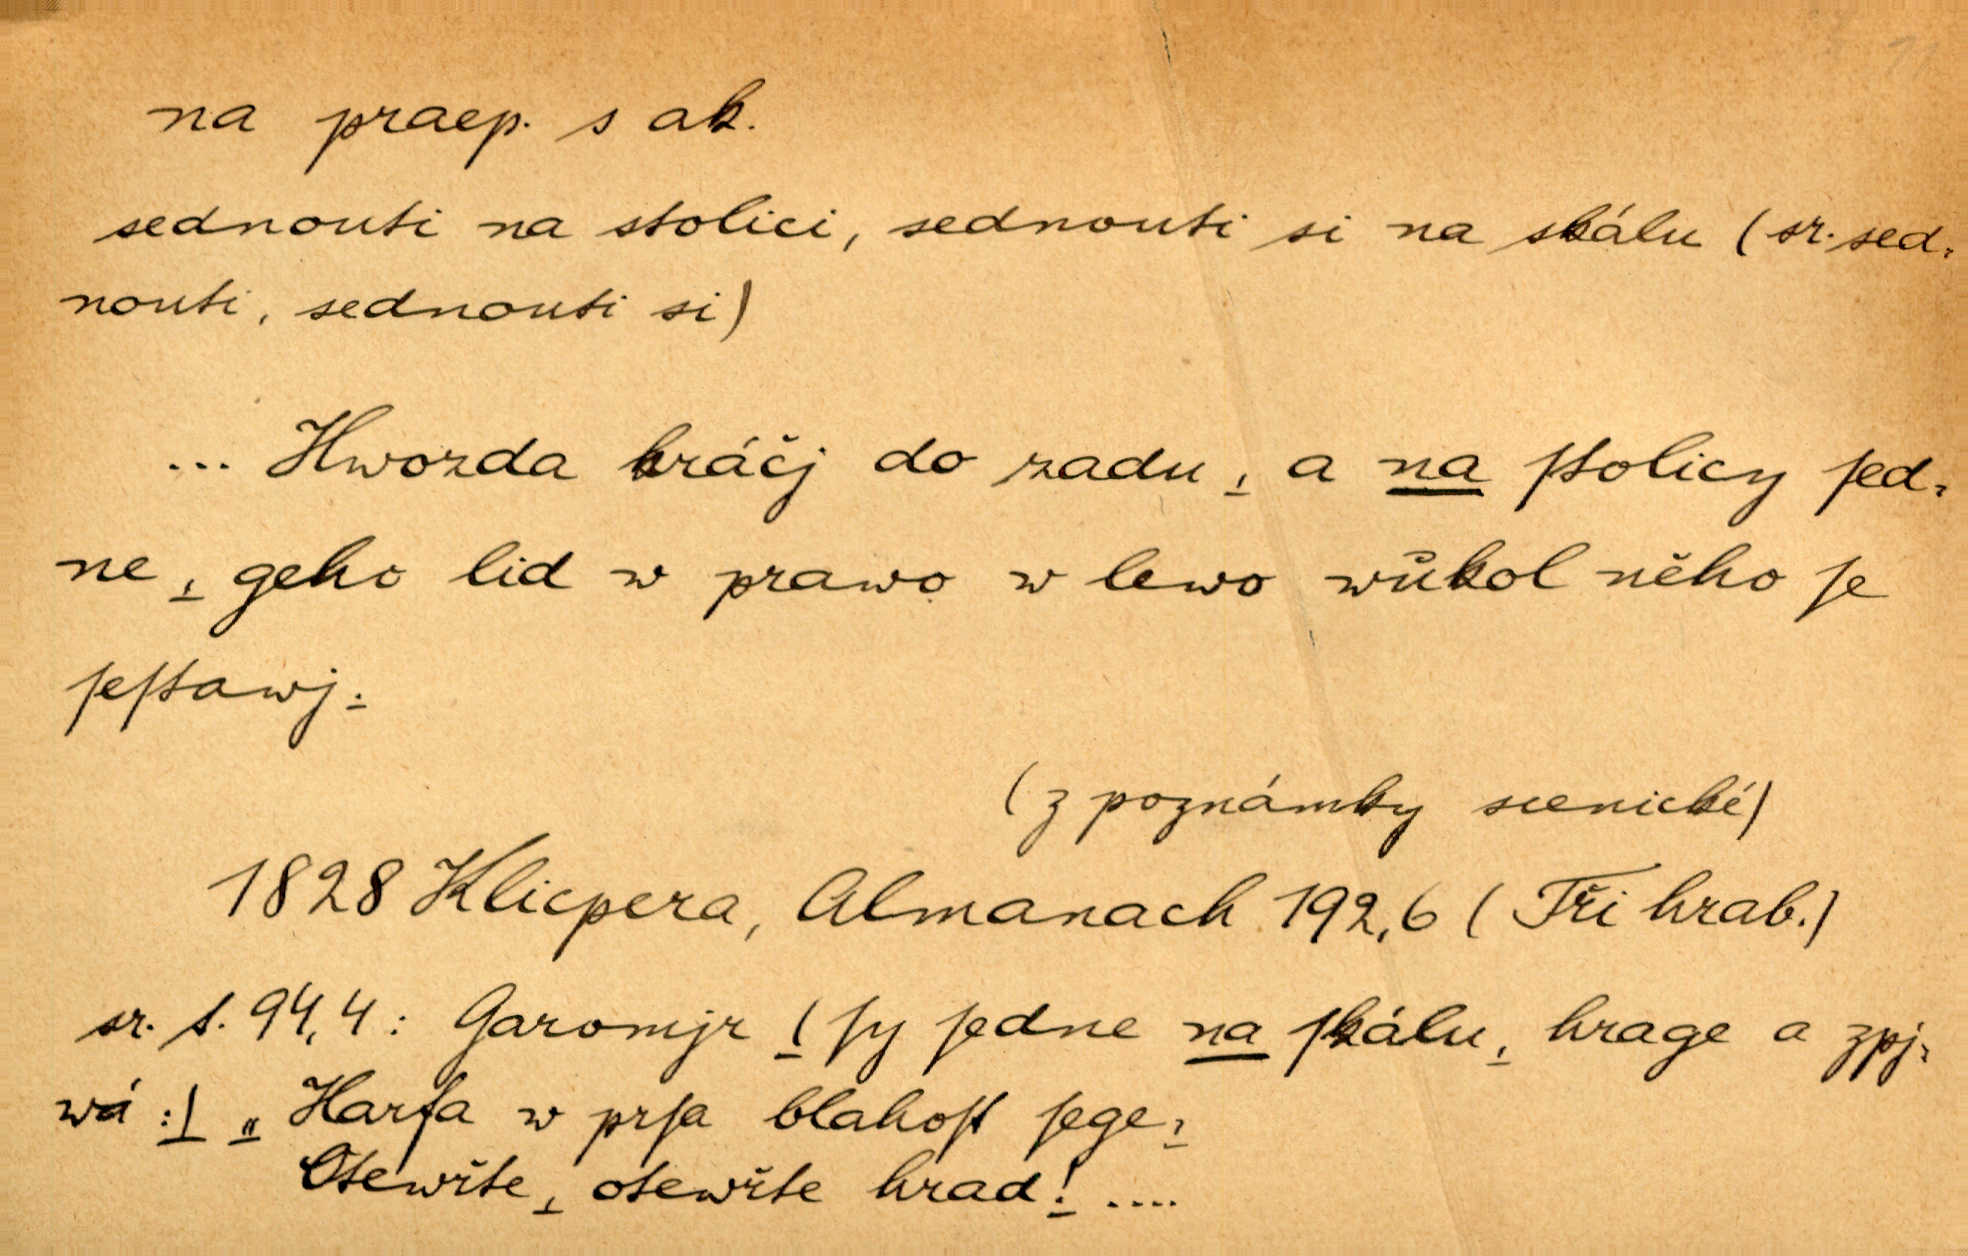 na praep. s ak.
sednouti na stolici, sednouti si na skálu (sr. sed-
nouti, sednouti si)
... Hwozda kráčj do zadu, a na ſtolicy ſed-
ne, geho lid w prawo w lewo wůkol něho ſe
ſeſtawj.
(z poznámky scenické)
1828 Klicpera, Almanach 192,6 (Tři hrab.)
sr. t. 94,4: Garomjr (ſy ſedne na ſkálu, hrage a zpj-
wá:) „Harfa w prſa blahoſt ſege;
Otewřte, otewřte hrad! ....